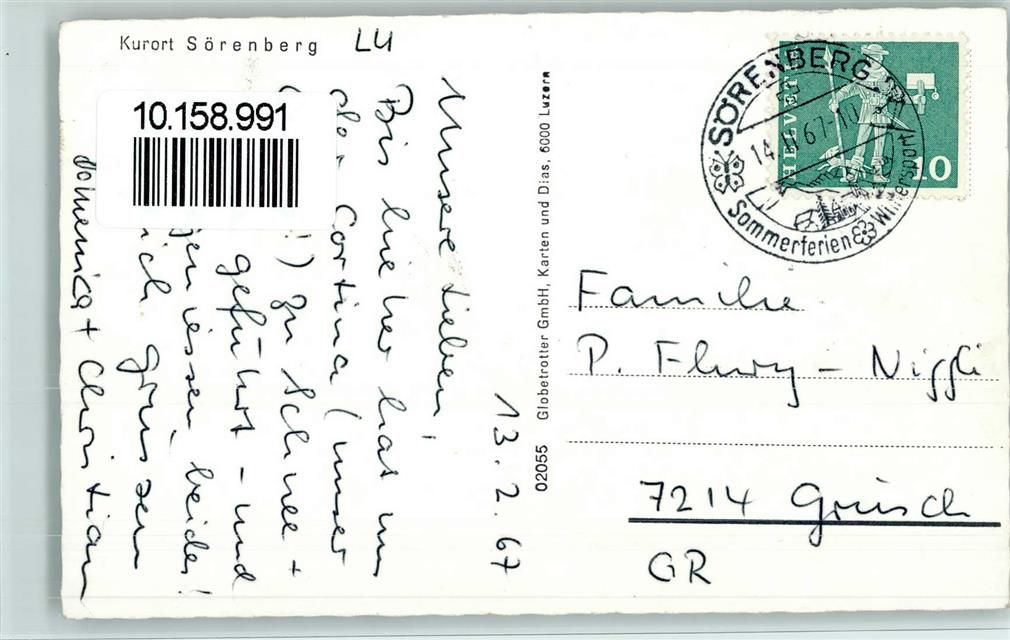 Kurort Sörenberg
LU
10.158.991
13. 2. 67
Unsere Lieben!
Bis hieher hat uns
der Cortina (unser
!) zu Schnee +
geführt - und
geniessen, beides!
ich grüssen
Domenica + Christian
02055 Globetrotter GmbH, Karten und Dias, 6000 Luzern
SÖRENBERG
14.II.67-10
Sommerferien Wintersport
HELVETIA
10
Familie
P. Flury - Niggli
7214 Grüsch
GR